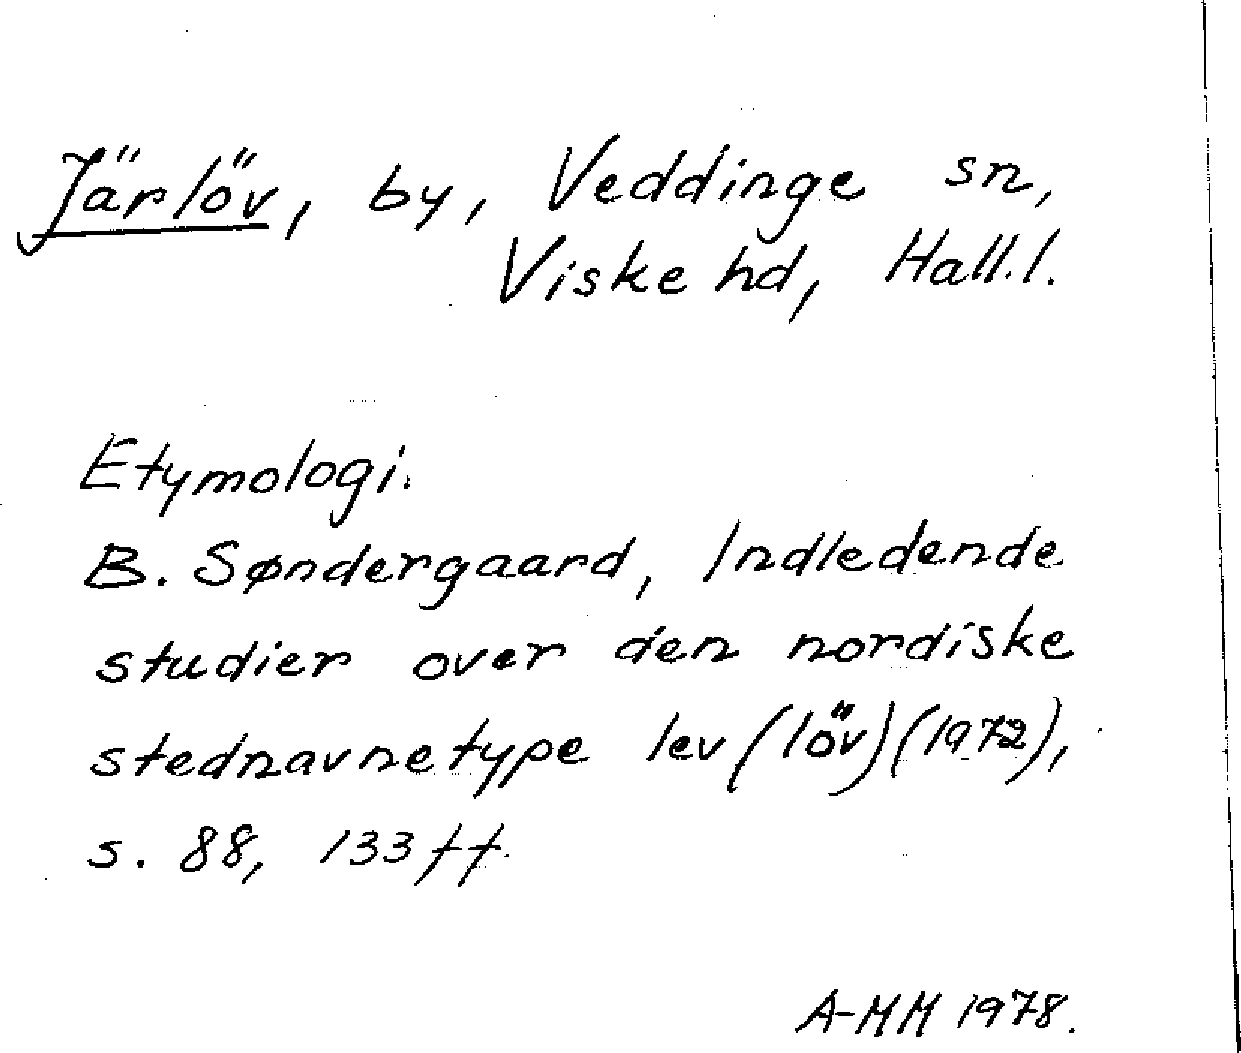 Järlöv, by, Veddinge sn,
Viske hd, Hall.l.
Etymologi.
B. Søndergaard, Indledende
studier over den nordiske
stednavnetype lev (löv) (1972),
s. 88, 133 ff.
A-MM 1978.